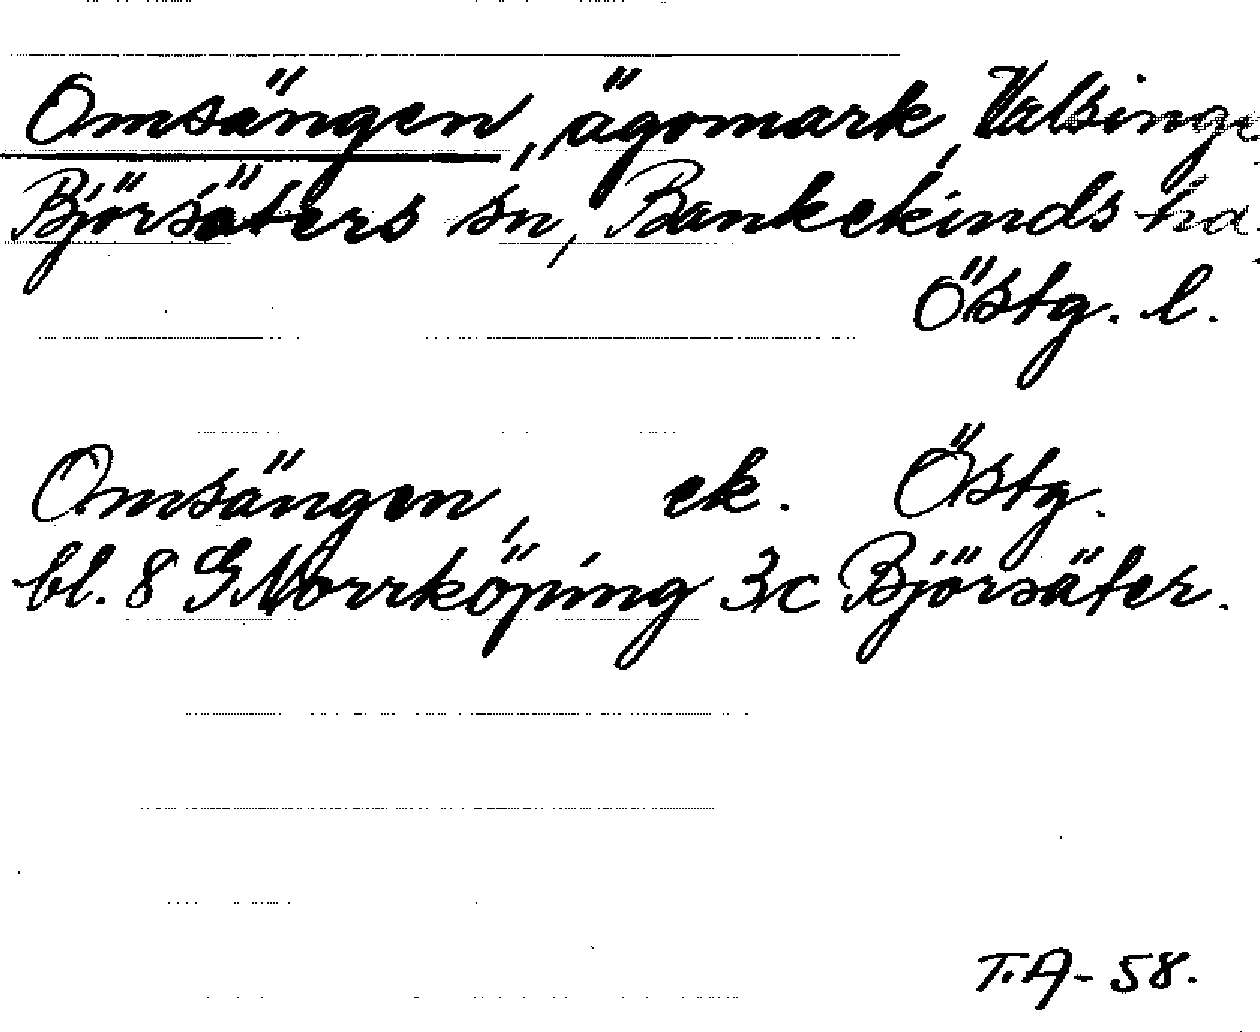 Omsängen, ägomark, Valsinge
Björsäters sn, Bankekinds hd.
Östg. l.
Omsängen, ek. Östg.
bl. 8 G Norrköping 3c Björsäter.
T.A-58.